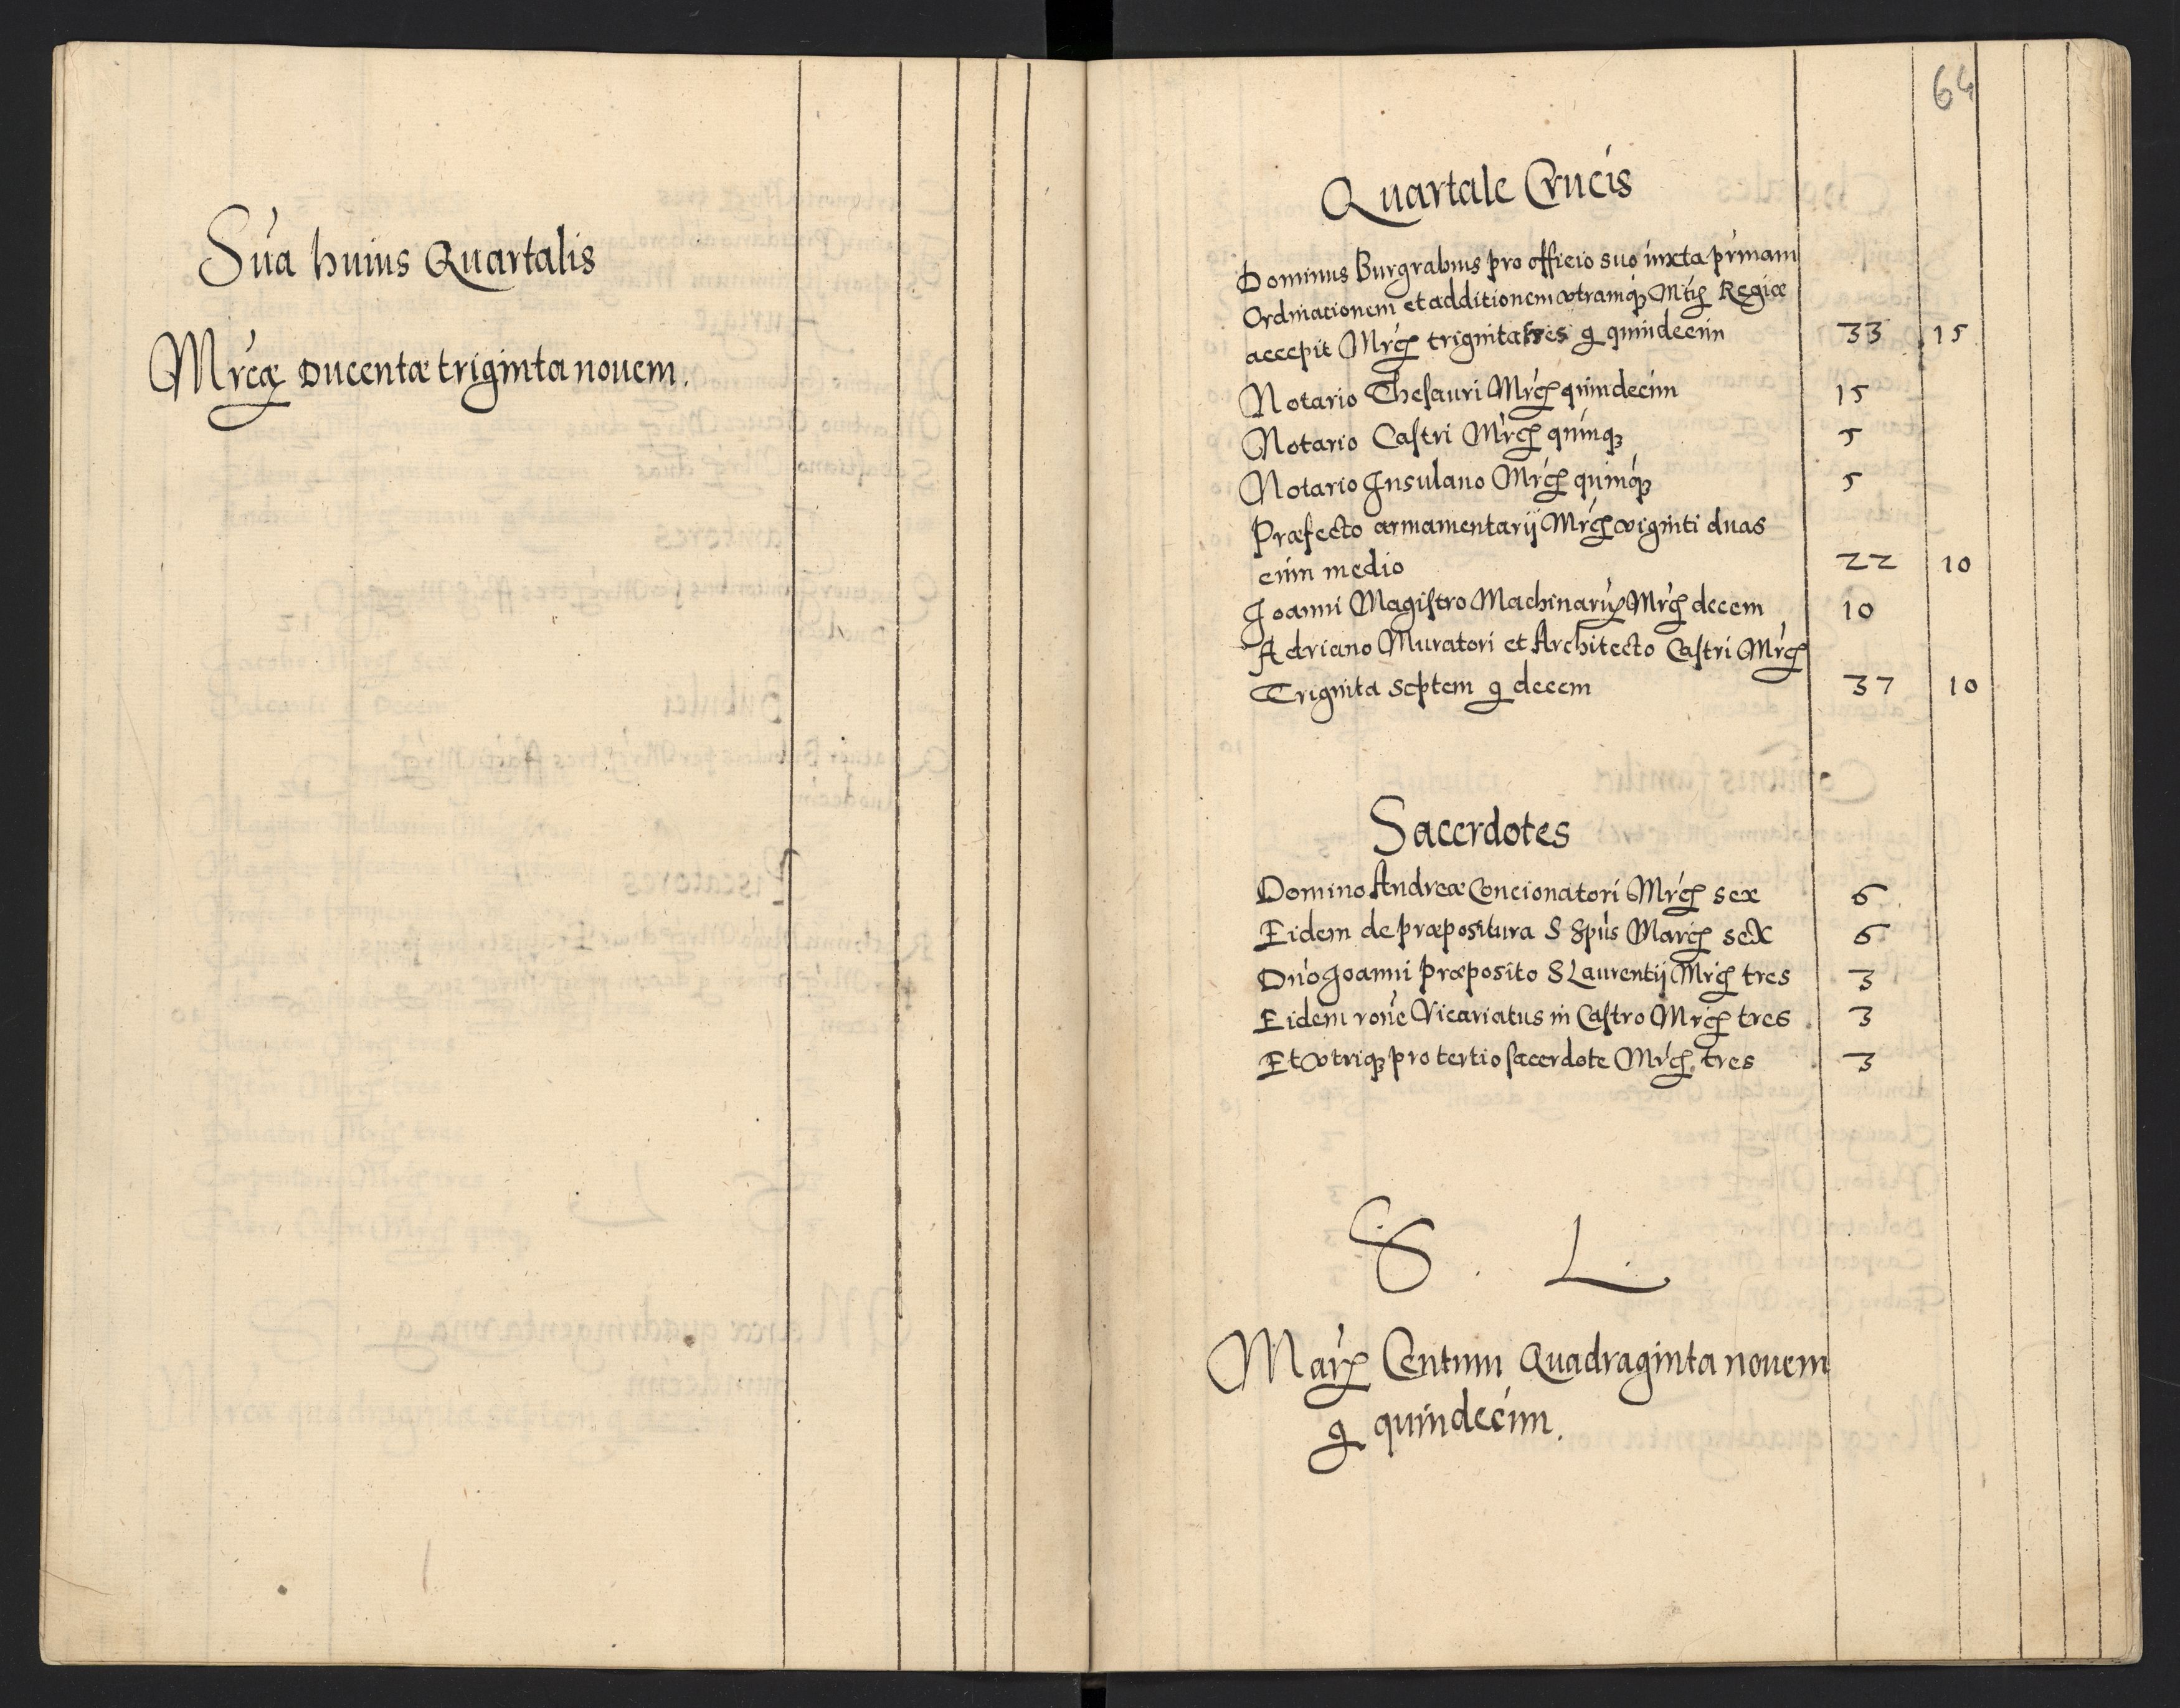 Sua huius Quartalis
Mrcæ Ducentæ triginta nouem.
64
Quartale Crucis
Dominus Burgrabius pro officio suo iuxta primam
Ordinationem et additionem vtramq Mtis Regiæ
accepit Mrcs triginta tres g quindecim 33 15
Notario Thesauri Mrcs quindecim 15
Notario Castri Mrcs quinq 5
Notario Insulano Mrcs quinq 5
Præfecto armamentarij Mrcs viginti duas
cum medio 22 10
Joanni Magistro Machinarum Mrcs decem 10
Adriano Muratori et Architecto Castri Mrcs
Triginta septem g decem 37 10
Sacerdotes
Domino Andreæ Concionatori Mrcs sex 6
Eidem de præpositura S Spus Marcs sex 6
Dno Joanni Præposito S Laurentij Mrcs tres 3
Eidem rone Vicariatus in Castro Mrcs tres 3
Et vtriq pro tertio sacerdote Mrcs tres 3
S. L.
Mar Centum Quadraginta nouem
g quindecim.